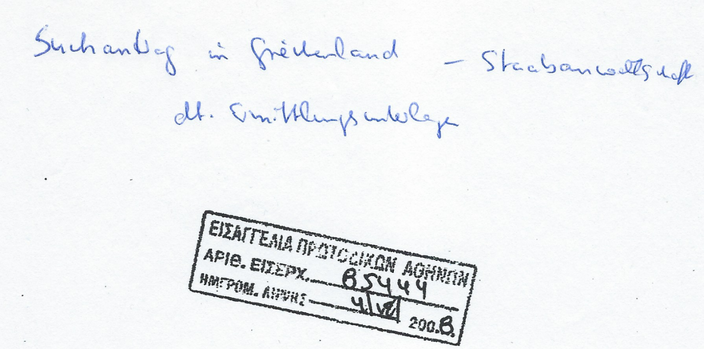 Suchantrag in Griechenland – Staatsanwaltschaft
dt. Ermittlungsunterlagen
ΕΙΣΑΓΓΕΛΙΑ ΠΡΩΤΟΔΙΚΩΝ ΑΘΗΝΩΝ
ΑΡΙΘ. ΕΙΣΕΡΧ. Β5444
ΗΜΕΡΟΜ. ΛΗΨΗΣ 4/VI 2008.